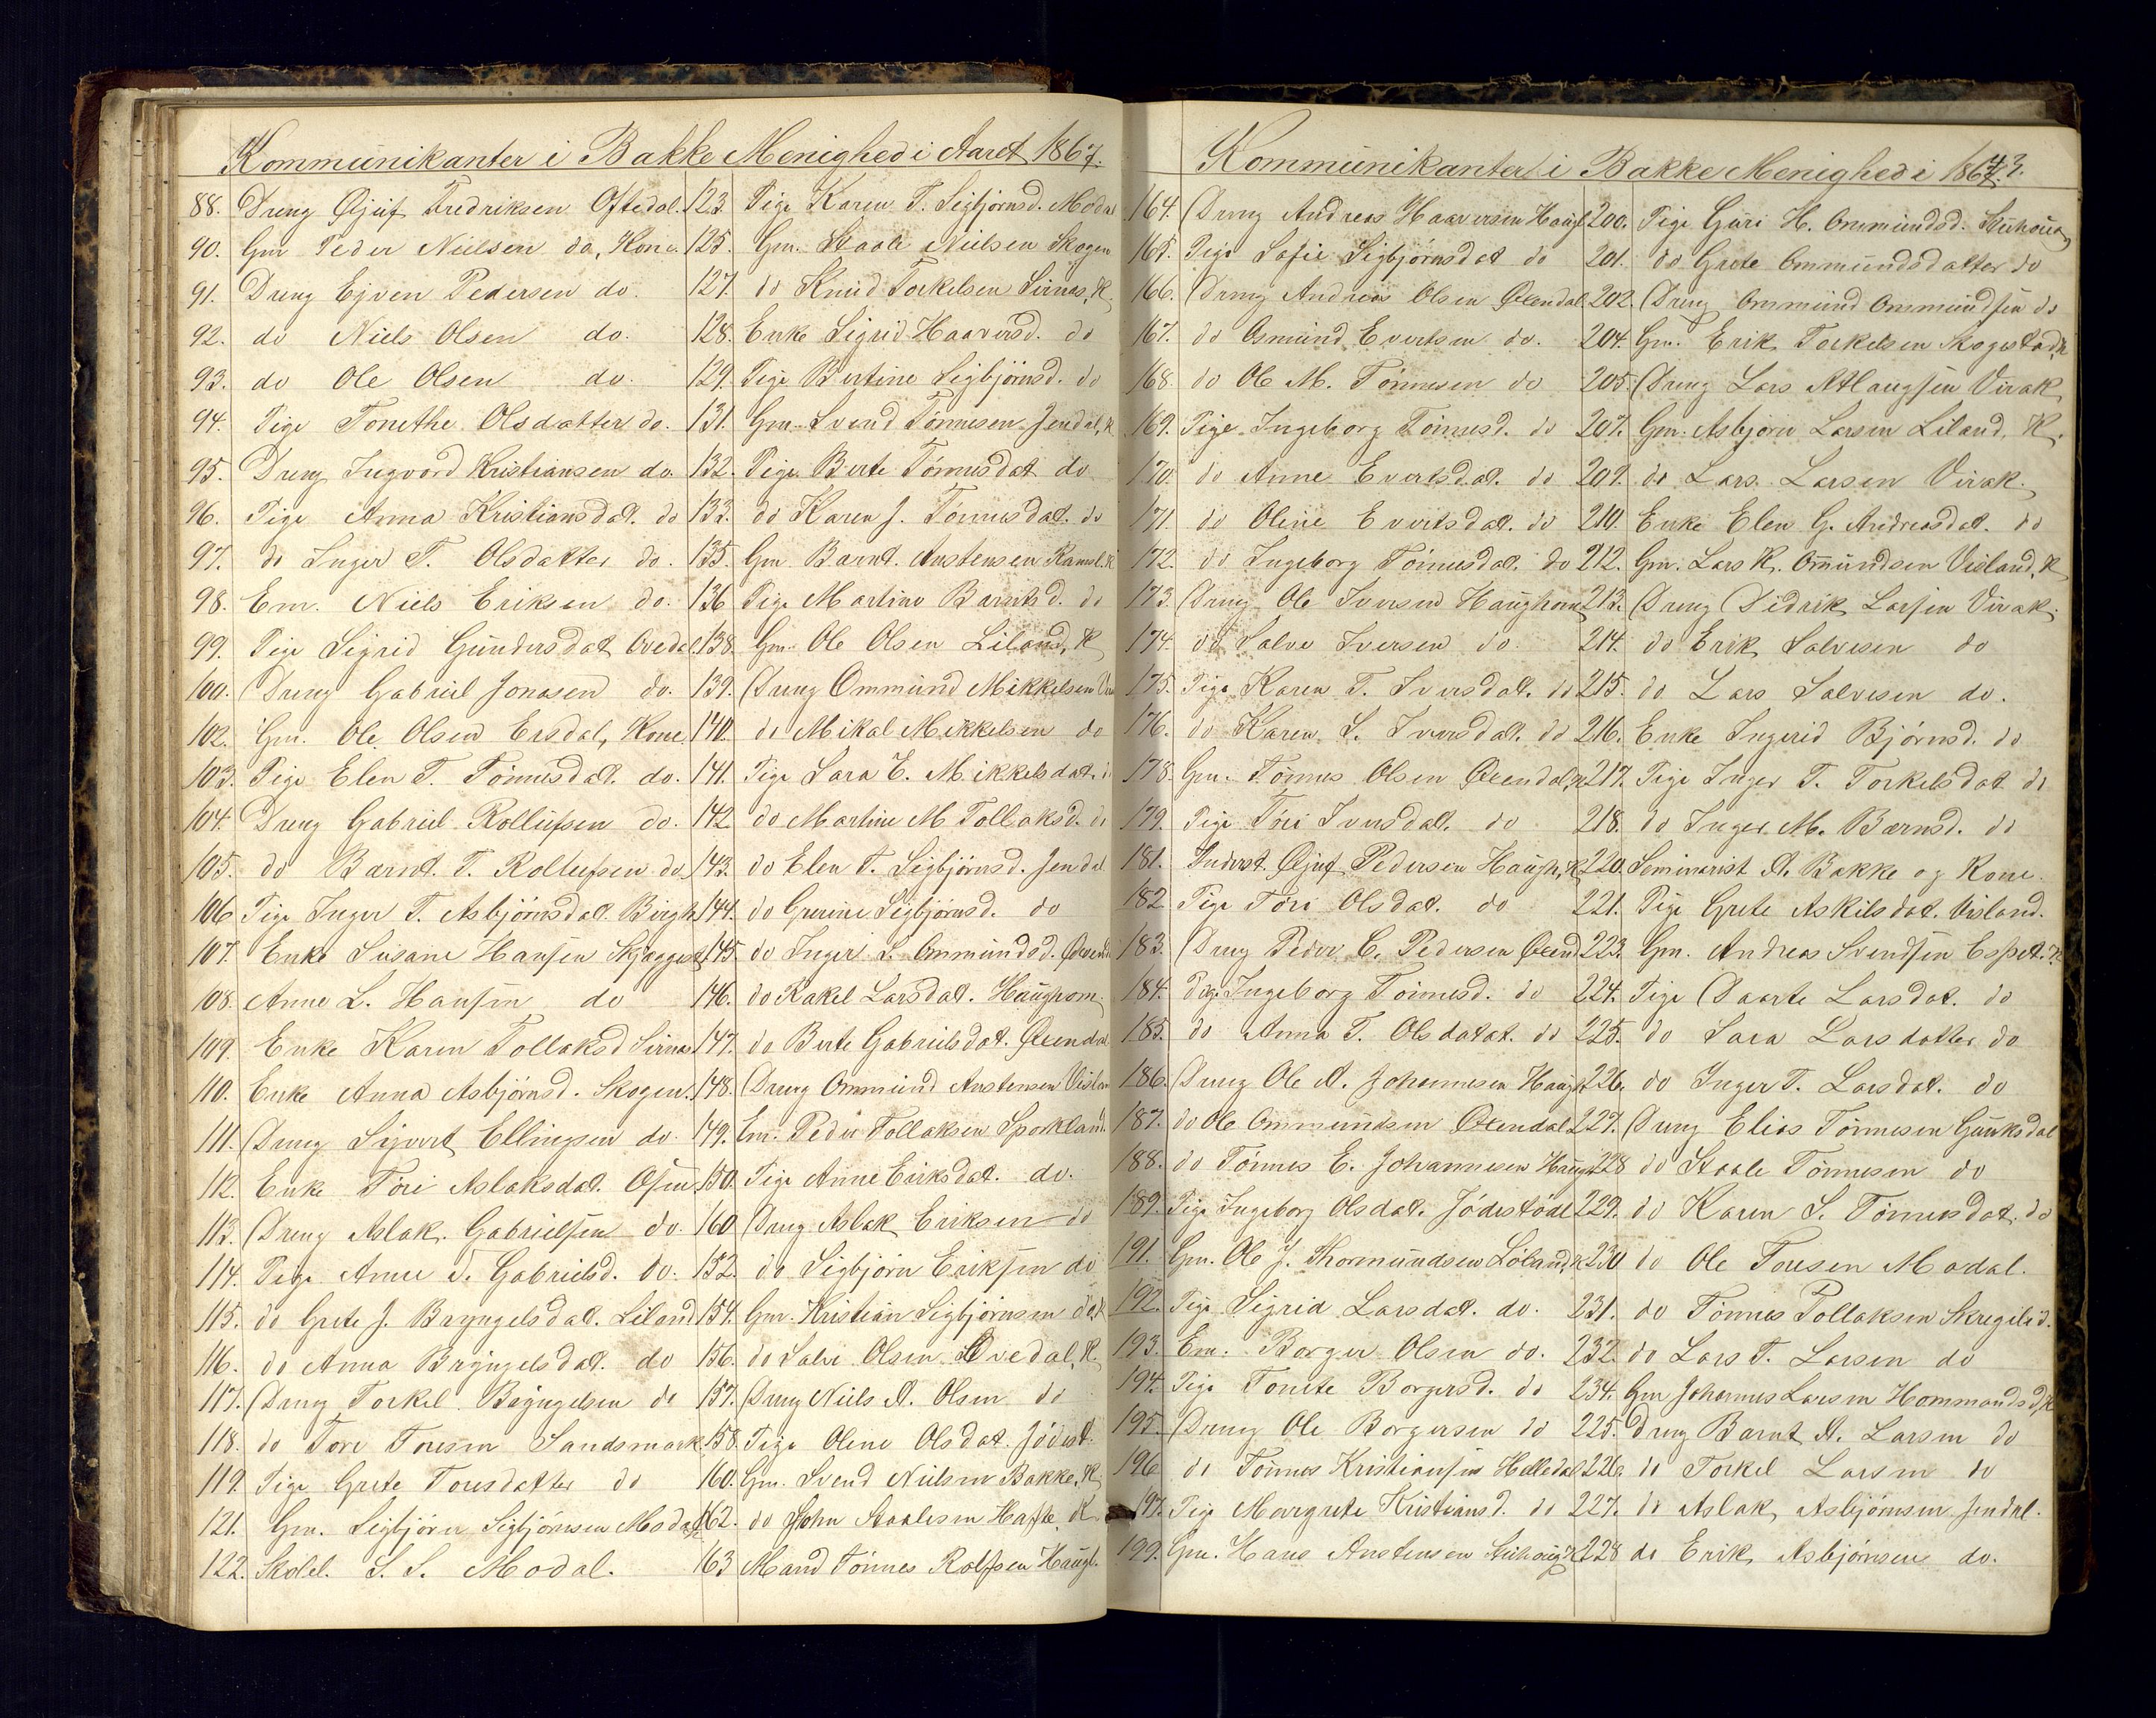 Kommunikanter i Bakke Menighed i Aaret 1867.
88. Dreng Ejuf Fredriksen Oftedal.
90. Gm Peder Nielsen do, Kone.
91. Dreng Ejven Pedersen do.
92. do Niels Olsen do.
93. do Ole Olsen do.
94. Pige Tonethe Olsdatter do.
95. Dreng Ingvord Kristiansen do.
96. Pige Anna Kristiansdat. do
97. do Inger T. Olsdatter do.
98. Em. Niels Eriksen do.
99. Pige Sigrid Gundersdat Ovedal
100. Dreng Gabriel Jonasen do.
102. Gm. Ole Olsen Ersdal, Kone
103. Pige Elen T. Tönnesdat. do.
104. Dreng Gabriel Rollufsen do.
105. do Barnt. T. Rollufsen do
106 Pige Inger T. Asbjörnsdat. Birgh
107. Enke Susane Hansen Skjægges
108. Anne L. Hansen do
109. Enke Karen Tollaksd Sirnas
110. Enke Anna Asbjörnsd. Skogen.
111. Dreng Sijvert Ellingsen do.
112. Enke Tori Aslaksdat. Osen
113. Dreng Aslak Gabrielsen do.
114. Pige Anne S. Gabrielsd. do.
115. do Grete J. Bryngelsdat. Liland
116. do Anna Bryngelsdat. do
117. Dreng Torkel Bryngelsen do
118. do Tore Toresen Sandsmark
119. Pige Grete Toresdatter do
121. Gm. Sigbjörn Sigbjörnsen Modal
122. Skolel. S. S. Modal.
123. Pige Karen T. Sigbjörnsd. Moda
125. Gm. Staale Nielsen Skogen
127. do Knud Torkelsen Sirnas, K
128. Enke Sigrid Haaversd. do
129. Pige Bertine Sigbjörnsd. do
131. Gm. Svend Tönnesen Jendal, K
132. Pige Berte Tönnesdat do
133. do Karen J. Tönnesdat. do
135. Gm Barnt. Anstensen Ramsl. K
136 Pige Martine Barntsd. do
138. Gm. Ole Olsen Liland, K
139. Dreng Ommund Mikkelsen
140. do Mikal Mikkelsen do
141. Pige Sara E. Mikkelsdat. d
142 do Martine M Tollaksd. do
143. do Elen T. Sigbjörnsd. Jendal
144. do Grerine Sigbjörnsd. do
145. do Inger S. Ommundsd. Øvend
146. do Rakel Larsdat. Haughom.
147. do Berte Gabrielsdat. Øxendal
148. Dreng Ommund Anstensen Vislan
149. Em. Peder Tollaksen Sporkland.
150. Pige Anne Eriksdat. do.
160 Dreng Aslak Eriksen do
152. do Sigbjörn Eriksen do
154. Gm. Kristian Sigbjörnsen do K
156. do Salve Olsen Ovedal, K
157. Dreng Niels A. Olsen do
158. Pige Oline Olsdat. Jödest.
160. Gm. Svend Nielsen Bakke, K
162. do John Staalesen Hafte, K
163 Mand Tönnes Rolfsen Haugh.
Kommunikanter i Bakke Menighed i 1867.
3.
164. Dreng Andreas Haaversen Haugh
165. Pige Sofie Sigbjörnsdat do
166. Dreng Andreas Olsen Øxendal
167. do Osmund Evertsen do.
168. do Ole M. Tönnesen do
169. Pige Ingeborg Tönnesd. do
170. do Anne Evertsdat. do
171. do Oline Evertsdat. do
172. do Ingeborg Tönnesdat. do
173. Dreng Ole Iversen Haughom
174. do Salve Iversen do
175. Pige Karen T. Iversdat. do
176. do Karen S. Iversdat. do
178. Gm. Tönnes Olsen Øxendal, K
179. Pige Tori Iversdat. do
181. Inderst. Ejuf Pedersen Haugh, K
182. Pige Tori Olsdat. do
183. Dreng Peder C. Pedersen Øxend
184. Pige Ingeborg Tönnesd. do
185. do Anna T. Olsdatat. do
186. Dreng Ole A. Johannesen Haugh
187. do Ole Ommundsen Øxendal
188. do Tönnes E. Johannesen Haugh
189. Pige Ingeborg Olsdat. Jödestöl
191. Gm. Ole J. Thormundsen Löland, K
192. Pige Sigrid Larsdat. do.
193. Em. Borger Olsen do.
194. Pige Tonete Borgersd. do
195. Dreng Ole Borgersen do
196 do Tönnes Kristiansen Helledal
197. Pige Margrete Kristiansd. do
199. Gm. Hans Anstensen Stuhoug K
200. Pige Guri H. Ommundsd. Stuhoug
201. do Grete Ommundsdatter do
202. Dreng Ommund Ommundsen do
204. Gm. Erik Torkelsen Skogestad, K
205. Dreng Lars Atlaugsen Virak
207. Gm. Asbjörn Larsen Liland, K.
209. do Lars Larsen Virak.
210. Enke Elen G. Andreasdat. do
212. Gm. Lars K. Omundsen Visland, K
213. Dreng Didrik Larsen Virak.
214. do Erik Salvesen do
215. do Lars Salvesen do.
216. Enke Ingerid Björnsd. do
217. Pige Inger T. Torkelsdat do
218. do Inger M. Bærnsd. do
220. Seminarist A. Bakke og Kone.
221. Pige Grete Askilsdat. Visland.
223. Gm. Andreas Svendsen Espet. K
224. Pige Daarte Larsdat. do
225. do Sara Larsdatter do
226. do Inger T. Larsdat. do
227. Dreng Elias Tönnesen Gauksdal
228 do Staale Tönnesen do
229. do Karen S. Tönnesdat. do
230 do Ole Toresen Modal.
231. do Tönnes Tollaksen Skregelid.
232. do Lars T. Larsen do
234. Gm Johannes Larsen Hommandsd, K
225. Dreng Barnt A. Larsen do
226. do Torkel Larsen do
227. do Aslak Asbjörnsen Jendal.
228 do Erik Asbjörnsen do.